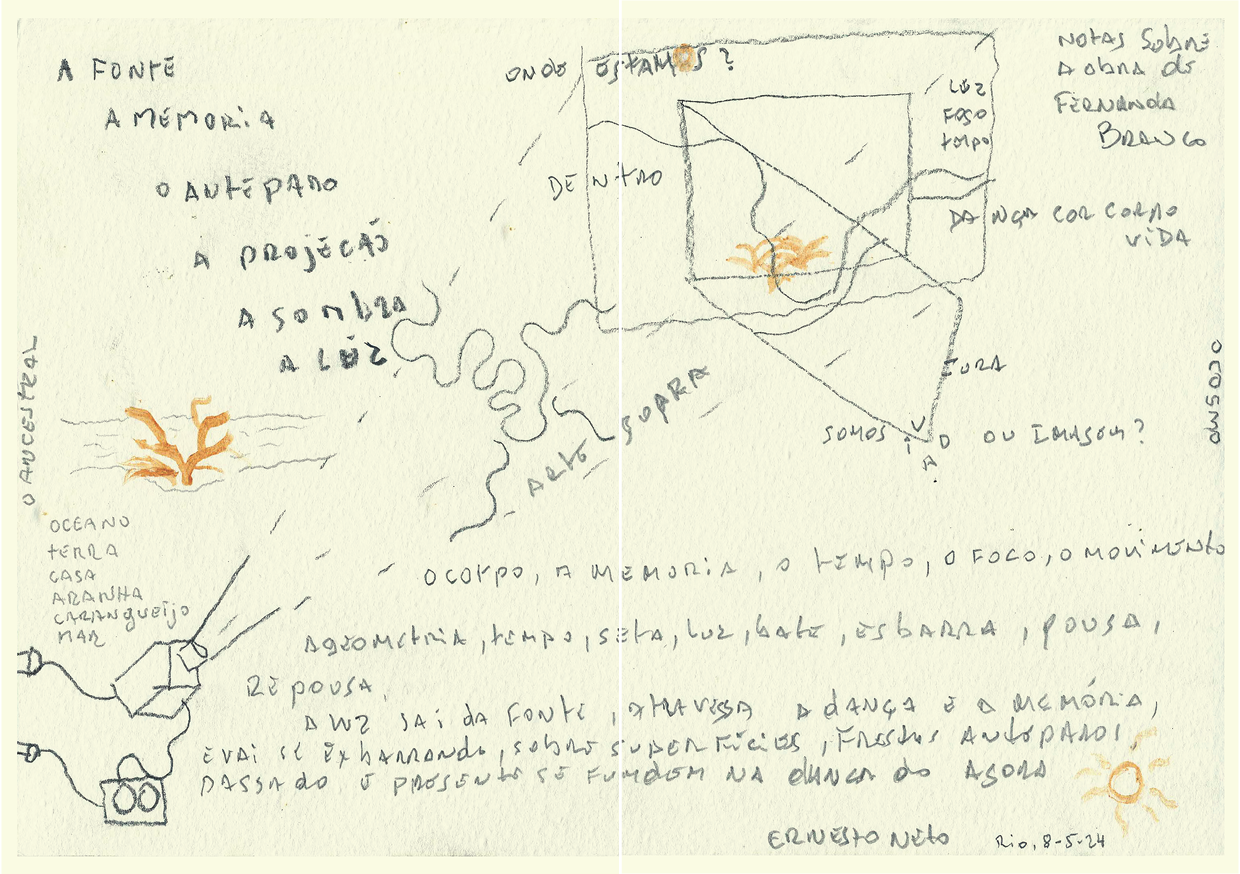 A FONTE
A MEMORIA
O ANTEPARO
A PROJEÇÃO
A SOMBRA
A LUZ
ONDE ESTAMOS?
DENTRO
LUZ
FOGO
tEMPO
NOTAS SobRE
A obra de
FERNANDA
BRANCO
DANÇA COR CORPO
VIDA
O ANCESTRAL
ARTE SUPRA
SOMOS VIDA OU IMAGEM?
OCEANO
TERRA
CASA
ARANHA
CARANGUEIJO
MAR
O CORPO, A MEMORIA, O tEMPO, O FOCO, O MOVIMENTO
A GEOMETRIA, tEMPO, SETA, LUZ, bATE, ESbARRA, POUSA,
REPOUSA,
A LUZ SAI dA FONTE, ATRAVESSA A dANÇA E A MEMÓRIA,
E VAI SE ExbARRANdo, SobRE SUPERFÍCIES, FRESTAS ANTEPAROS,
PASSADO E PRESENTE SE FUMDEM NA dANÇA do AGORA
ERNESTO NETO
Rio, 8-5-24